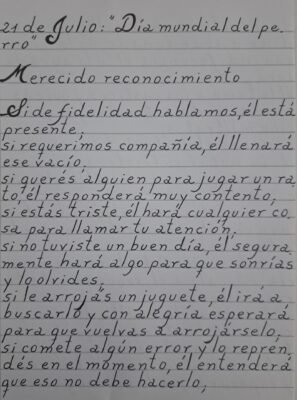 21 de Julio: "Día mundial del pe-
rro"
Merecido reconocimiento
Si de fidelidad hablamos, él está
presente,
si requerimos compañía, él llenará
ese vacío,
si querés alguien para jugar un ra-
to, él responderá muy contento,
si estás triste, él hará cualquier co-
sa para llamar tu atención,
si no tuviste un buen día, él segura-
mente hará algo para que sonrías
y lo olvides,
si le arrojás un juguete, él irá a
buscarlo y con alegría esperará
para que vuelvas a arrojárselo,
si comete algún error y lo repren-
dés en el momento, él entenderá
que eso no debe hacerlo,